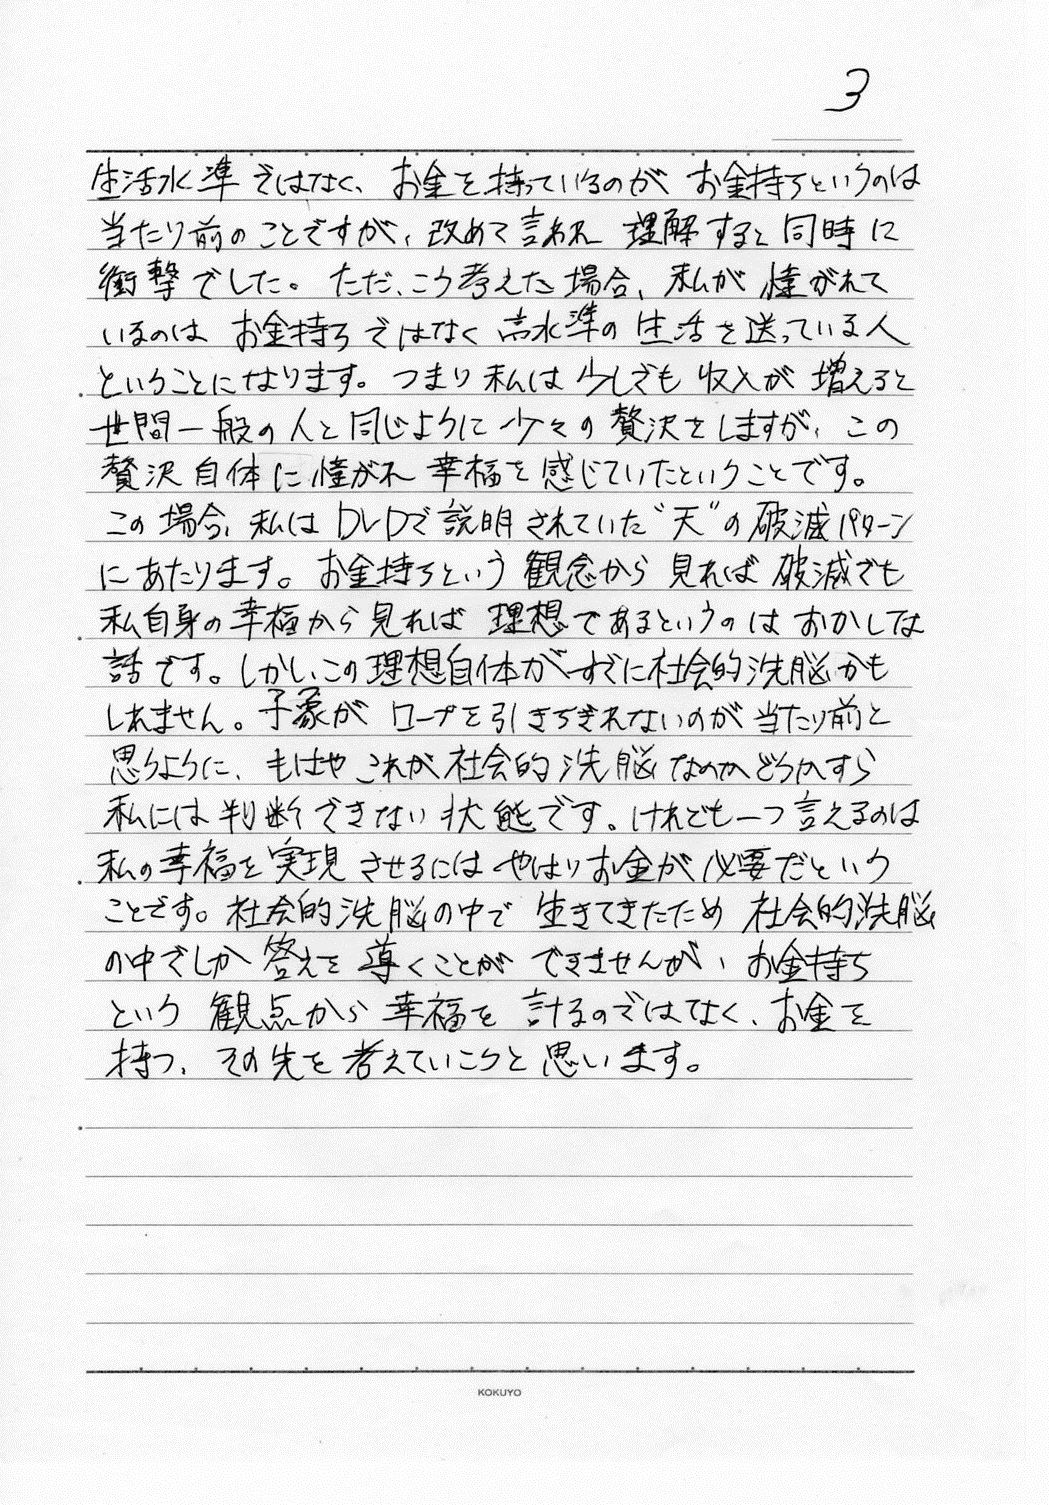 3
生活水準ではなく、お金を持っているのがお金持ちというのは
当たり前のことですが、改めて言われ理解すると同時に
衝撃でした。ただ、こう考えた場合、私が憧がれて
いるのはお金持ちではなく高水準の生活を送っている人
ということになります。つまり私は少しでも収入が増えると
世間一般の人と同じように少々の贅沢をしますが、この
贅沢自体に憧がれ幸福を感じていたということです。
この場合、私はDVDで説明されていた"天"の破滅パターン
にあたります。お金持ちという観念から見れば破滅でも
私自身の幸福から見れば理想であるというのはおかしな
話です。しかしこの理想自体がすでに社会的洗脳かも
しれません。子象がロープを引きちぎれないのが当たり前と
思うように、もはやこれが社会的洗脳なのかどうかすら
私には判断できない状態です。けれども一つ言えるのは
私の幸福を実現させるにはやはりお金が必要だという
ことです。社会的洗脳の中で生きてきたため社会的洗脳
の中でしか答えを導くことができませんが、お金持ち
という観点から幸福を計るのではなく、お金を
持つ、その先を考えていこうと思います。
KOKUYO